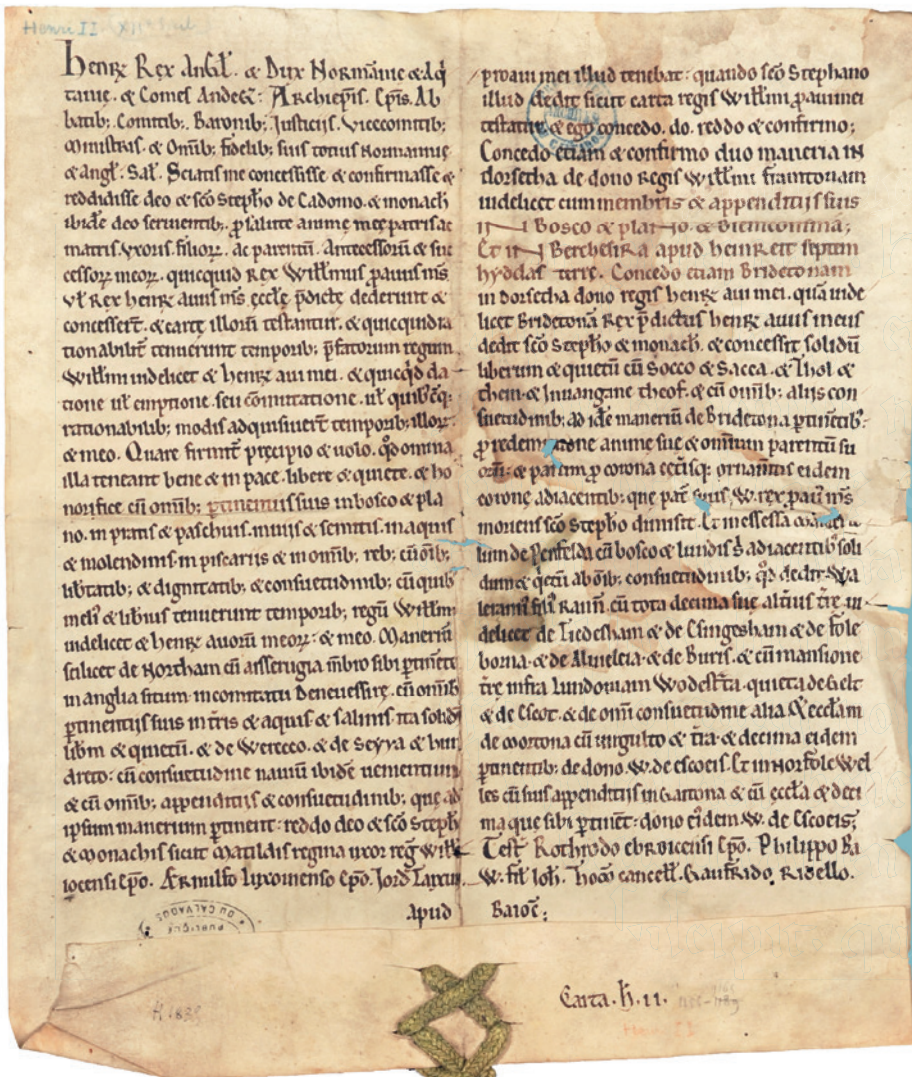 Henri II
henr Rex Angl. & Dux Normannie & Aq
tanie. & Comes Andeg: Archiepis. Epis. Ab
batib; Comitib; Baronib; Justiciis. Vicecomitib;
Ministris. & Omib; fidelib; suis totius Normannie
& angl. Sal. Sciatis me concessisse & confirmasse &
reddidisse deo & sco Stepho de Cadomo. & monach
ibide deo seruientib; p salute anime mee patris ac
matris. uxoris. filior. ac parentu. Antecessoru & suc
cessor meor. quicquid Rex Willmus pauus ms
ul Rex henr auus ms eccle pdicte dederunt &
concessert. & carte illoru testantur. & quicquid ra
tionabilit tenuerunt temporib; pfatorum regum
Willmi uidelicet & henr aui mei. & quicqd da
tione ul emptione. seu comutatione. ul quib;cq;
rationabilib; modis adquisiuert temporib; illor
& meo. Quare firmit precipio & uolo. qd omnia
illa teneant bene & in pace. libere & quiete. & ho
norifice cu omib; ptinentiis suis in bosco & pla
no. in pratis & pascuis. in uiis & semitis. in aquis
& molendinis. in piscariis & in omib; reb; cu oib;
libtatib; & dignitatib; & consuetudinib; cu quib
meli & libius tenuerunt temporib; regu Willmi
uidelicet & henr auoru meor: & meo. Maneriu
scilicet de Northam cu aisserugia mbro sibi ptinete
in anglia situm in comitatu Deneuessire. cu omib
ptinentiis suis in tris & aquis & salinis. ita solid
libm & quietu. & de Werecco. & de Scyra & hun
dreto: cu consuetudine nauiu ibide uenientium
& cu omib; appenditiis & consuetudinib; que ad
ipsum manerium ptinent: reddo deo & sco Steph
& monachis sicut Matildis regina uxor reg Will
proaui mei illud tenebat: quando sco Stephano
illud dedit sicut carta regis Willmi paui mei
testatur. & ego concedo. do. reddo & confirmo;
Concedo etiam & confirmo duo maneria in
dorsetha de dono Regis Willmi framtonam
uidelicet cum membris & appenditiis suis
in Bosco & plano. & Biencomina;
Et in Berchesira apud henreit septem
hydas terre. Concedo etiam Bridetonam
in dorsetha dono regis henr aui mei. qua uide
licet Bridetona Rex pdictus henr auus meus
dedit sco Stepho & monach. & concessit solidu
liberum & quietu cu Socco & Sacca. & Thol &
them. & Infangine theof. & cu omib; aliis con
suetudinib; ad ide maneriu de Bridetona ptinetib;
p redemptione anime sue & omnium parentu su
oru: & partim p corona ceterisq; ornamtis eidem
corone adiacentib; que pat suus. W. rex pau ms
moriens sco Stepho dimisit. Et in essessa
lum de Penfelda cu bosco & lundis s adiacentib soli
dum & qetu ab oib; consuetudinib; qd dedit Wa
leranus fili Rann cu tota decima sue alterius tre ui
delicet de Tiedesham & de Esingesham & de fole
borna. & de Alueleia. & de Buris. & cu mansione
tre infra lundoniam Wodestta. quieta de Gelt
& de Escot. & de omi consuetudine alia. & ecclam
de mortona cu uirgulto & tra & decima eidem
ptinentib; de dono. W. de escoeis. Et in Norfolc Wel
les cu suis appenditiis in Gaitona & cu eccla & deci
ma que sibi ptinet: dono eidem W. de Escoeis;
Test Rothrodo ebroicensi epo. Philippo Ba
iocensi epo. Ærnulfo luxouiense epo. Jord Taxun.
W. fil Ioh. Thom cancell. Gaufrido Ridello.
apud Baioc;
PUBLIQUE
DU CALVADOS
H 1835
Carta. h. 11.
Henri II